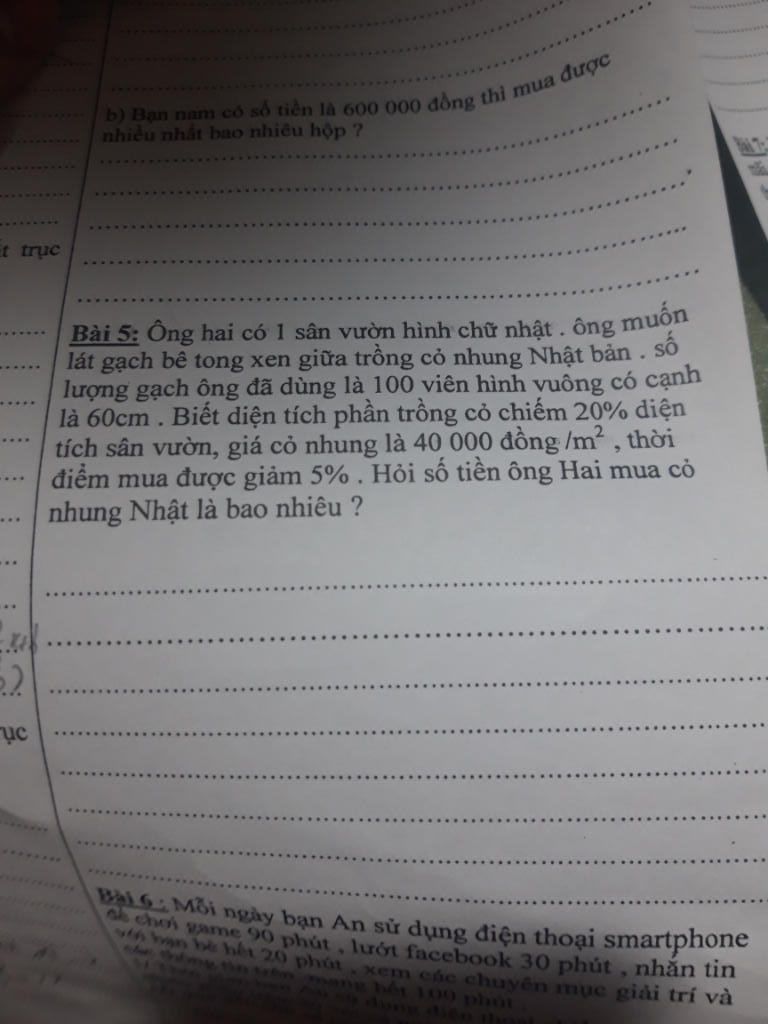 b) Bạn nam có số tiền là 600 000 đồng thì mua được
nhiều nhất bao nhiêu hộp ?
t trục
Bài 5: Ông hai có 1 sân vườn hình chữ nhật . ông muốn
lát gạch bê tong xen giữa trồng cỏ nhung Nhật bản . số
lượng gạch ông đã dùng là 100 viên hình vuông có cạnh
là 60cm . Biết diện tích phần trồng cỏ chiếm 20% diện
tích sân vườn, giá cỏ nhung là 40 000 đồng /m² , thời
điểm mua được giảm 5% . Hỏi số tiền ông Hai mua cỏ
nhung Nhật là bao nhiêu ?
ục
Bài 6 : Mỗi ngày bạn An sử dụng điện thoại smartphone
để chơi game 90 phút , lướt facebook 30 phút , nhắn tin
với bạn bè hết 20 phút , xem các chuyên mục giải trí và
các thông tin trên mạng hết 100 phút .
Bài 7: